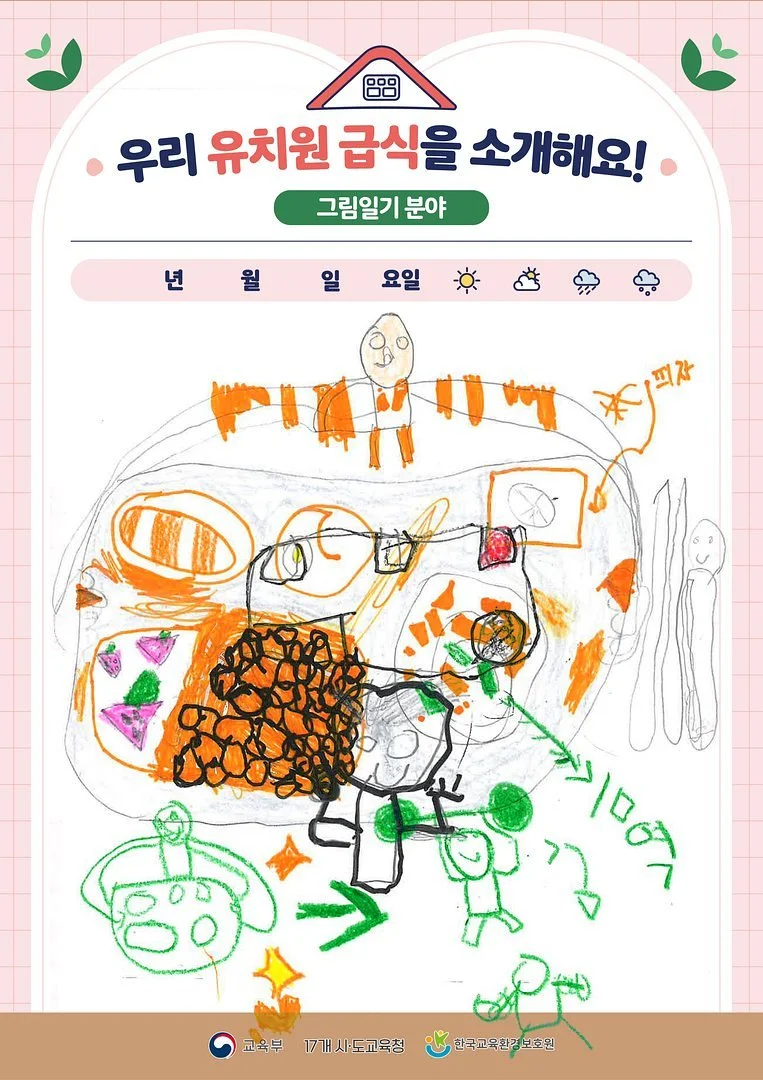 우리 유치원 급식을 소개해요!
그림일기 분야
년 월 일 요일
피자
교육부 17개 시·도교육청 한국교육환경보호원